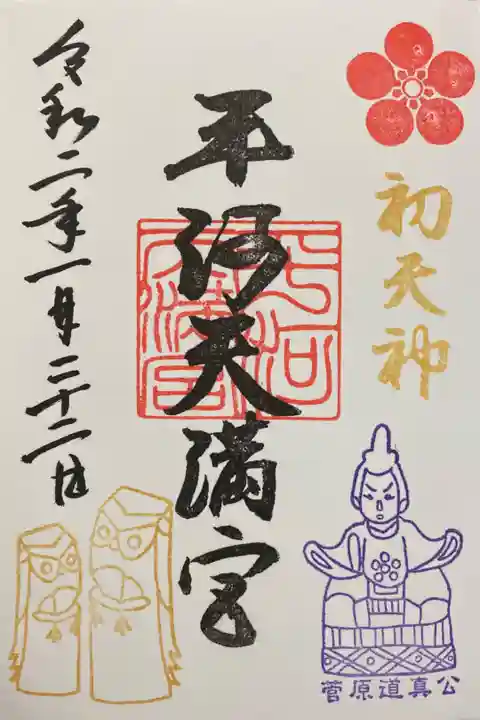 初天神
菅原道真公
平河天満宮
平河
天満宮
令和二年一月二十二日